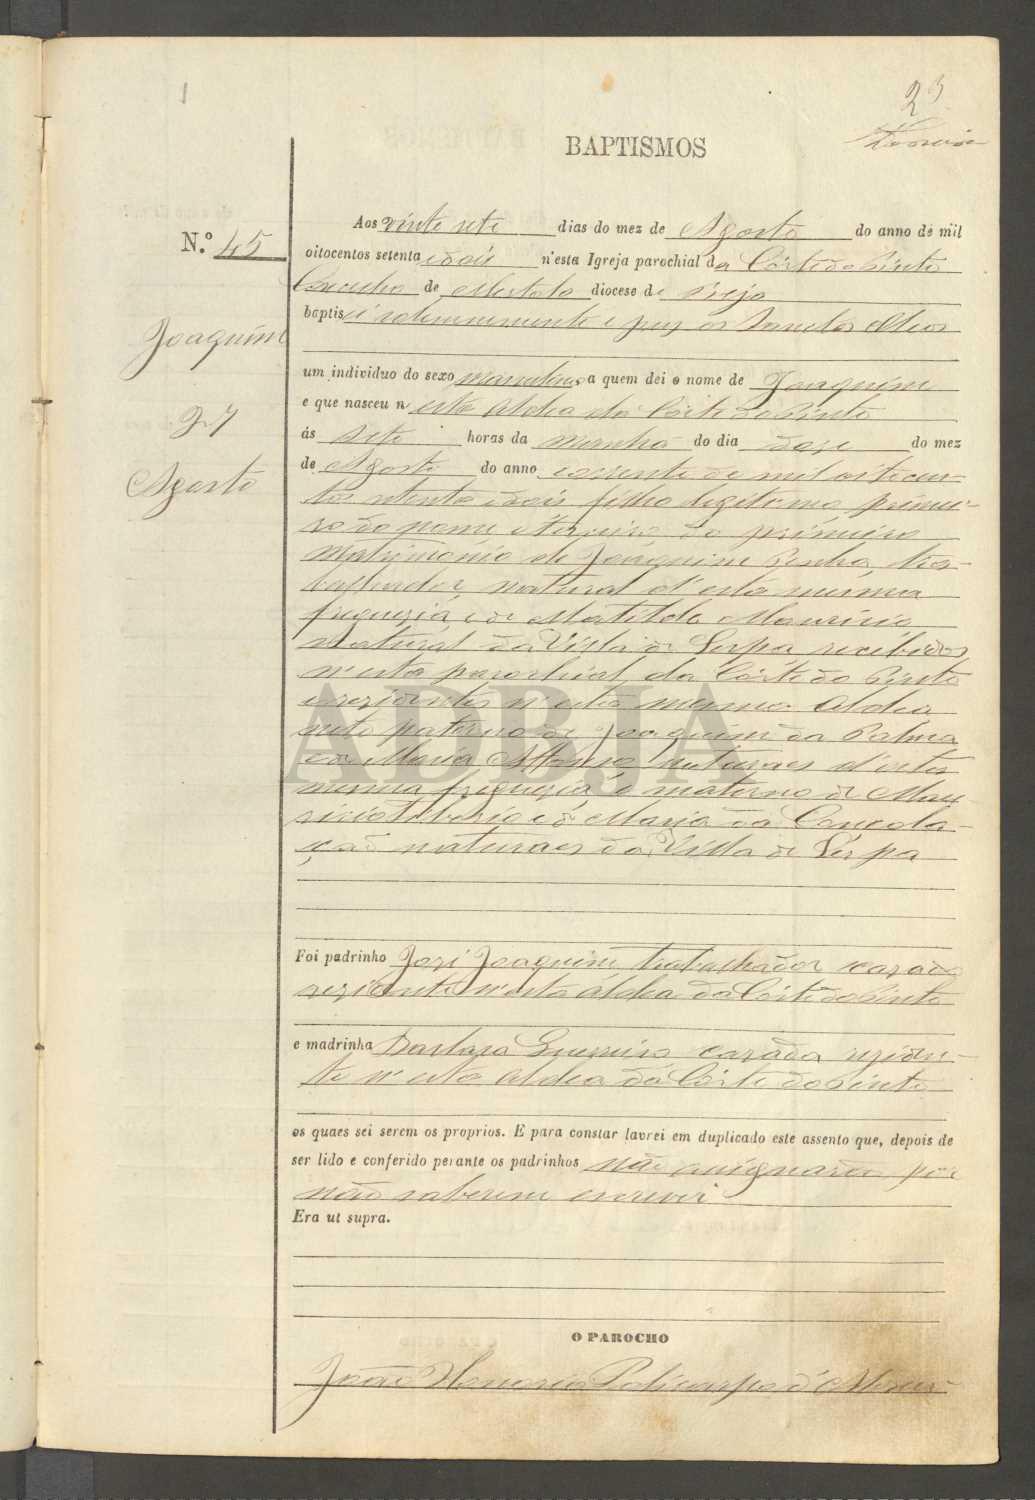 1
23
BAPTISMOS
N.º 45
Joaquim
27
Agosto
Aos vinte sete dias do mez de Agosto do anno de mil
oitocentos setenta e dois n'esta Igreja parochial da Côrte do Pinto
Concelho de Mertola diocese de Beja
baptisei solemnemente e puz os Sanctos Oleos
um individuo do sexo masculino, a quem dei o nome de Joaquim
e que nasceu n'esta Aldea da Côrte do Pinto
ás sete horas da manhã do dia doze do mez
de Agosto do anno corrente de mil oitocen-
tos setenta e dois filho legitimo primei-
ro do nome e terceiro do primeiro
matrimonio de Joaquim Penha, tra-
balhador, natural d'esta mesma
freguezia, e de Matilde Mauricia
natural da Villa de Serpa, recibidos
n'esta parochial da Côrte do Pinto
e rezidentes n'esta mesma Aldea
neto paterno de Joaquim da Palma
e de Maria Affonso naturaes d'esta
mesma freguezia e materno de Mau-
ricio Liborio e de Maria da Concola-
ção naturaes da Villa de Serpa
Foi padrinho Jozé Joaquim trabalhador cazado
rezidente n'esta aldea da Côrte do Pinto
e madrinha Barbara Guerreiro cazada reziden-
te n'esta Aldea da Côrte do Pinto
os quaes sei serem os proprios. E para constar lavrei em duplicado este assento que, depois de
ser lido e conferido perante os padrinhos não assignarão por
não saberem escrever
Era ut supra.
O PAROCHO
João Honorio Policarpo d'
ADBJA